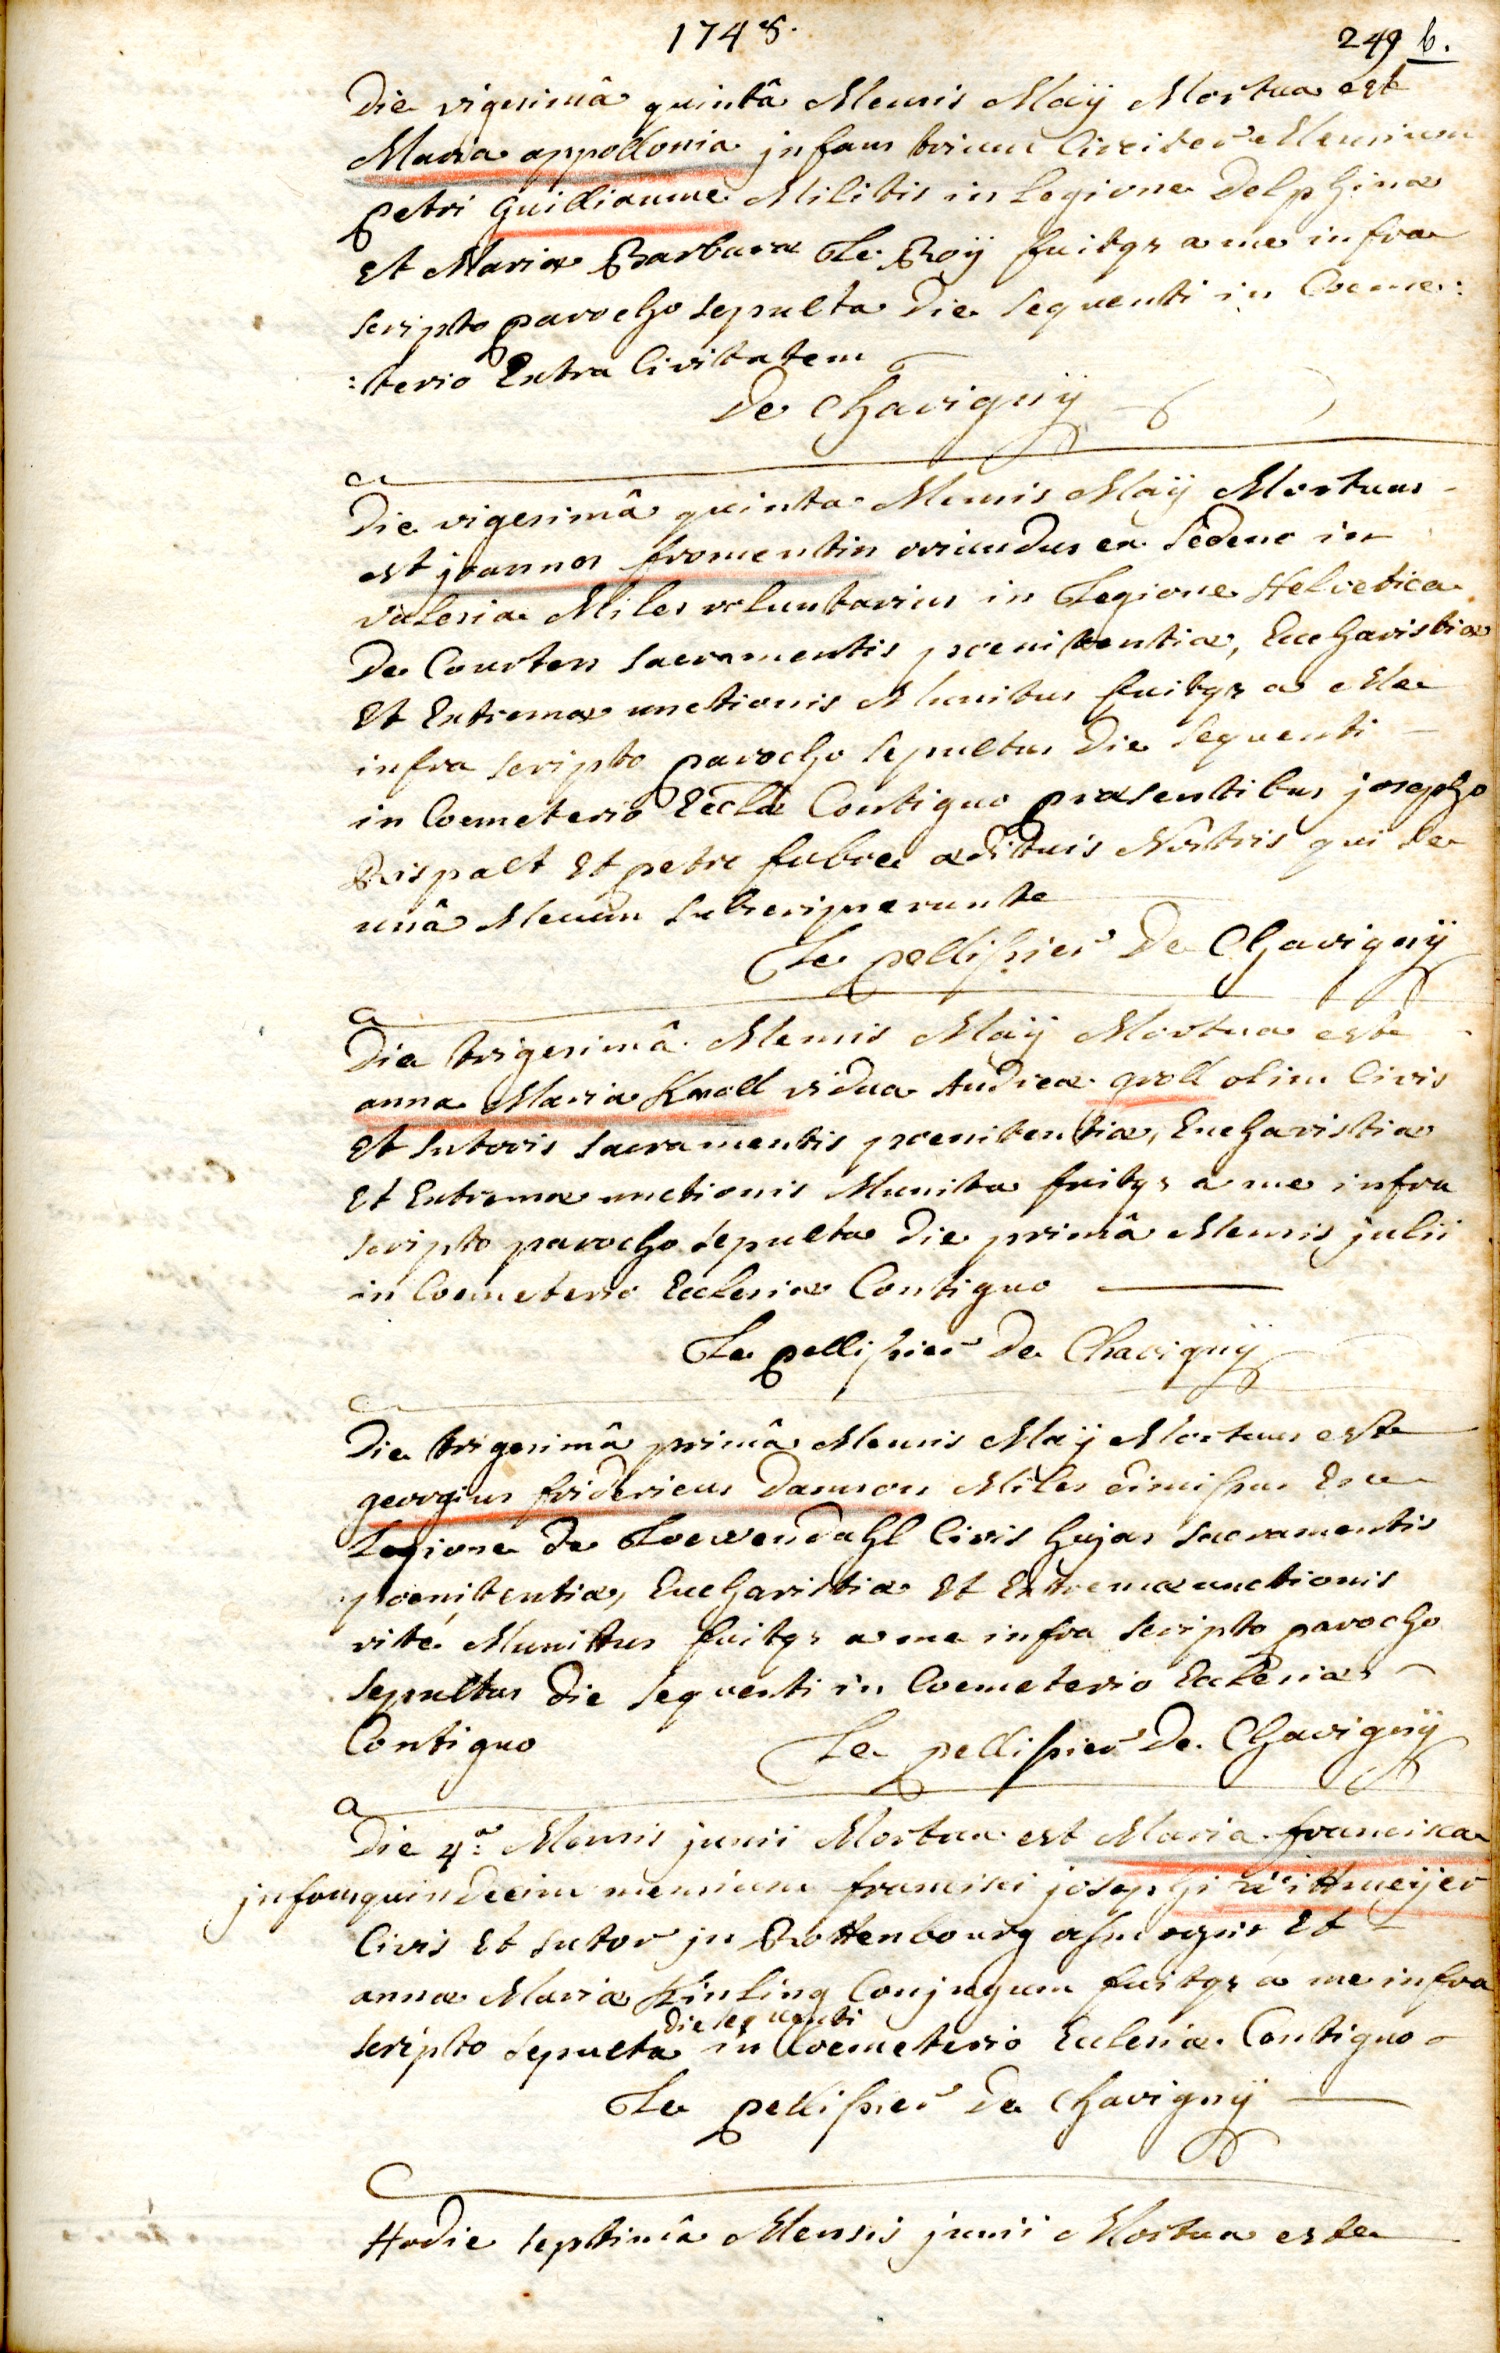 1748.
249 b.
Die vigesimâ quintâ Mensis Maÿ Mortua est
Maria appollonia infans trium Circiter Mensium
petri Guilliaume Militis in Legione Delphina
Et Mariæ Barbaræ Le Roÿ fuitqz a me infra
scripto parocho sepulta Die sequenti in Coeme:
:terio Extra Civitatem
De Chavignÿ
Die vigesimâ quinta Mensis Maÿ Mortuus
est joannes fromentin oriundus ex Sedeno in
valesia Miles voluntarius in Legione Helvetica
De Courten sacramentis poenitentiæ, Eucharistiæ
Et Extremæ unctionis Munitus fuitqz a Me
infra scripto parocho sepultus Die sequenti
in Coemeterio Eccłæ Contiguo præsentibus josepho
Rispalt Et petro fabre ædituis Nostris qui
unâ Mecum subscripserunt
Le pellissier De Chavignÿ
Die trigesimâ Mensis Maÿ Mortua est
anna Maria Knoll vidua Andreæ groll olim Civis
Et sutoris sacramentis poenitentiæ, Eucharistiæ
Et Extremæ unctionis Munita fuitqz a me infra
scripto parocho sepulta Die primâ Mensis julii
in Coemeterio Ecclesiæ Contiguo
Le pellissier De Chavignÿ
Die trigesimâ primâ Mensis Maÿ Mortuus est
georgius fridericus Damson Miles dimissus Ex
Legione De Loewendahl Civis hujas sacramentis
poenitentiæ, Eucharistiæ Et Extremæ unctionis
rite Munitus fuitqz a me infra scripto parocho
sepultus Die sequenti in Coemeterio Ecclesiæ
Contiguo
Le pellissier De Chavignÿ
Die 4ª: Mensis junii Mortua est Maria francisca
infans quindecim mensium francisci josephi Wittmeÿer
Civis Et sutor in Rottenbourg Et
annæ Mariæ Kinling Conjugum fuitqz a me infra
die sequenti
scripto sepulta in Coemeterio Ecclesiæ Contiguo
Le pellissier De Chavignÿ
Hodie septimâ Mensis junii Mortua est